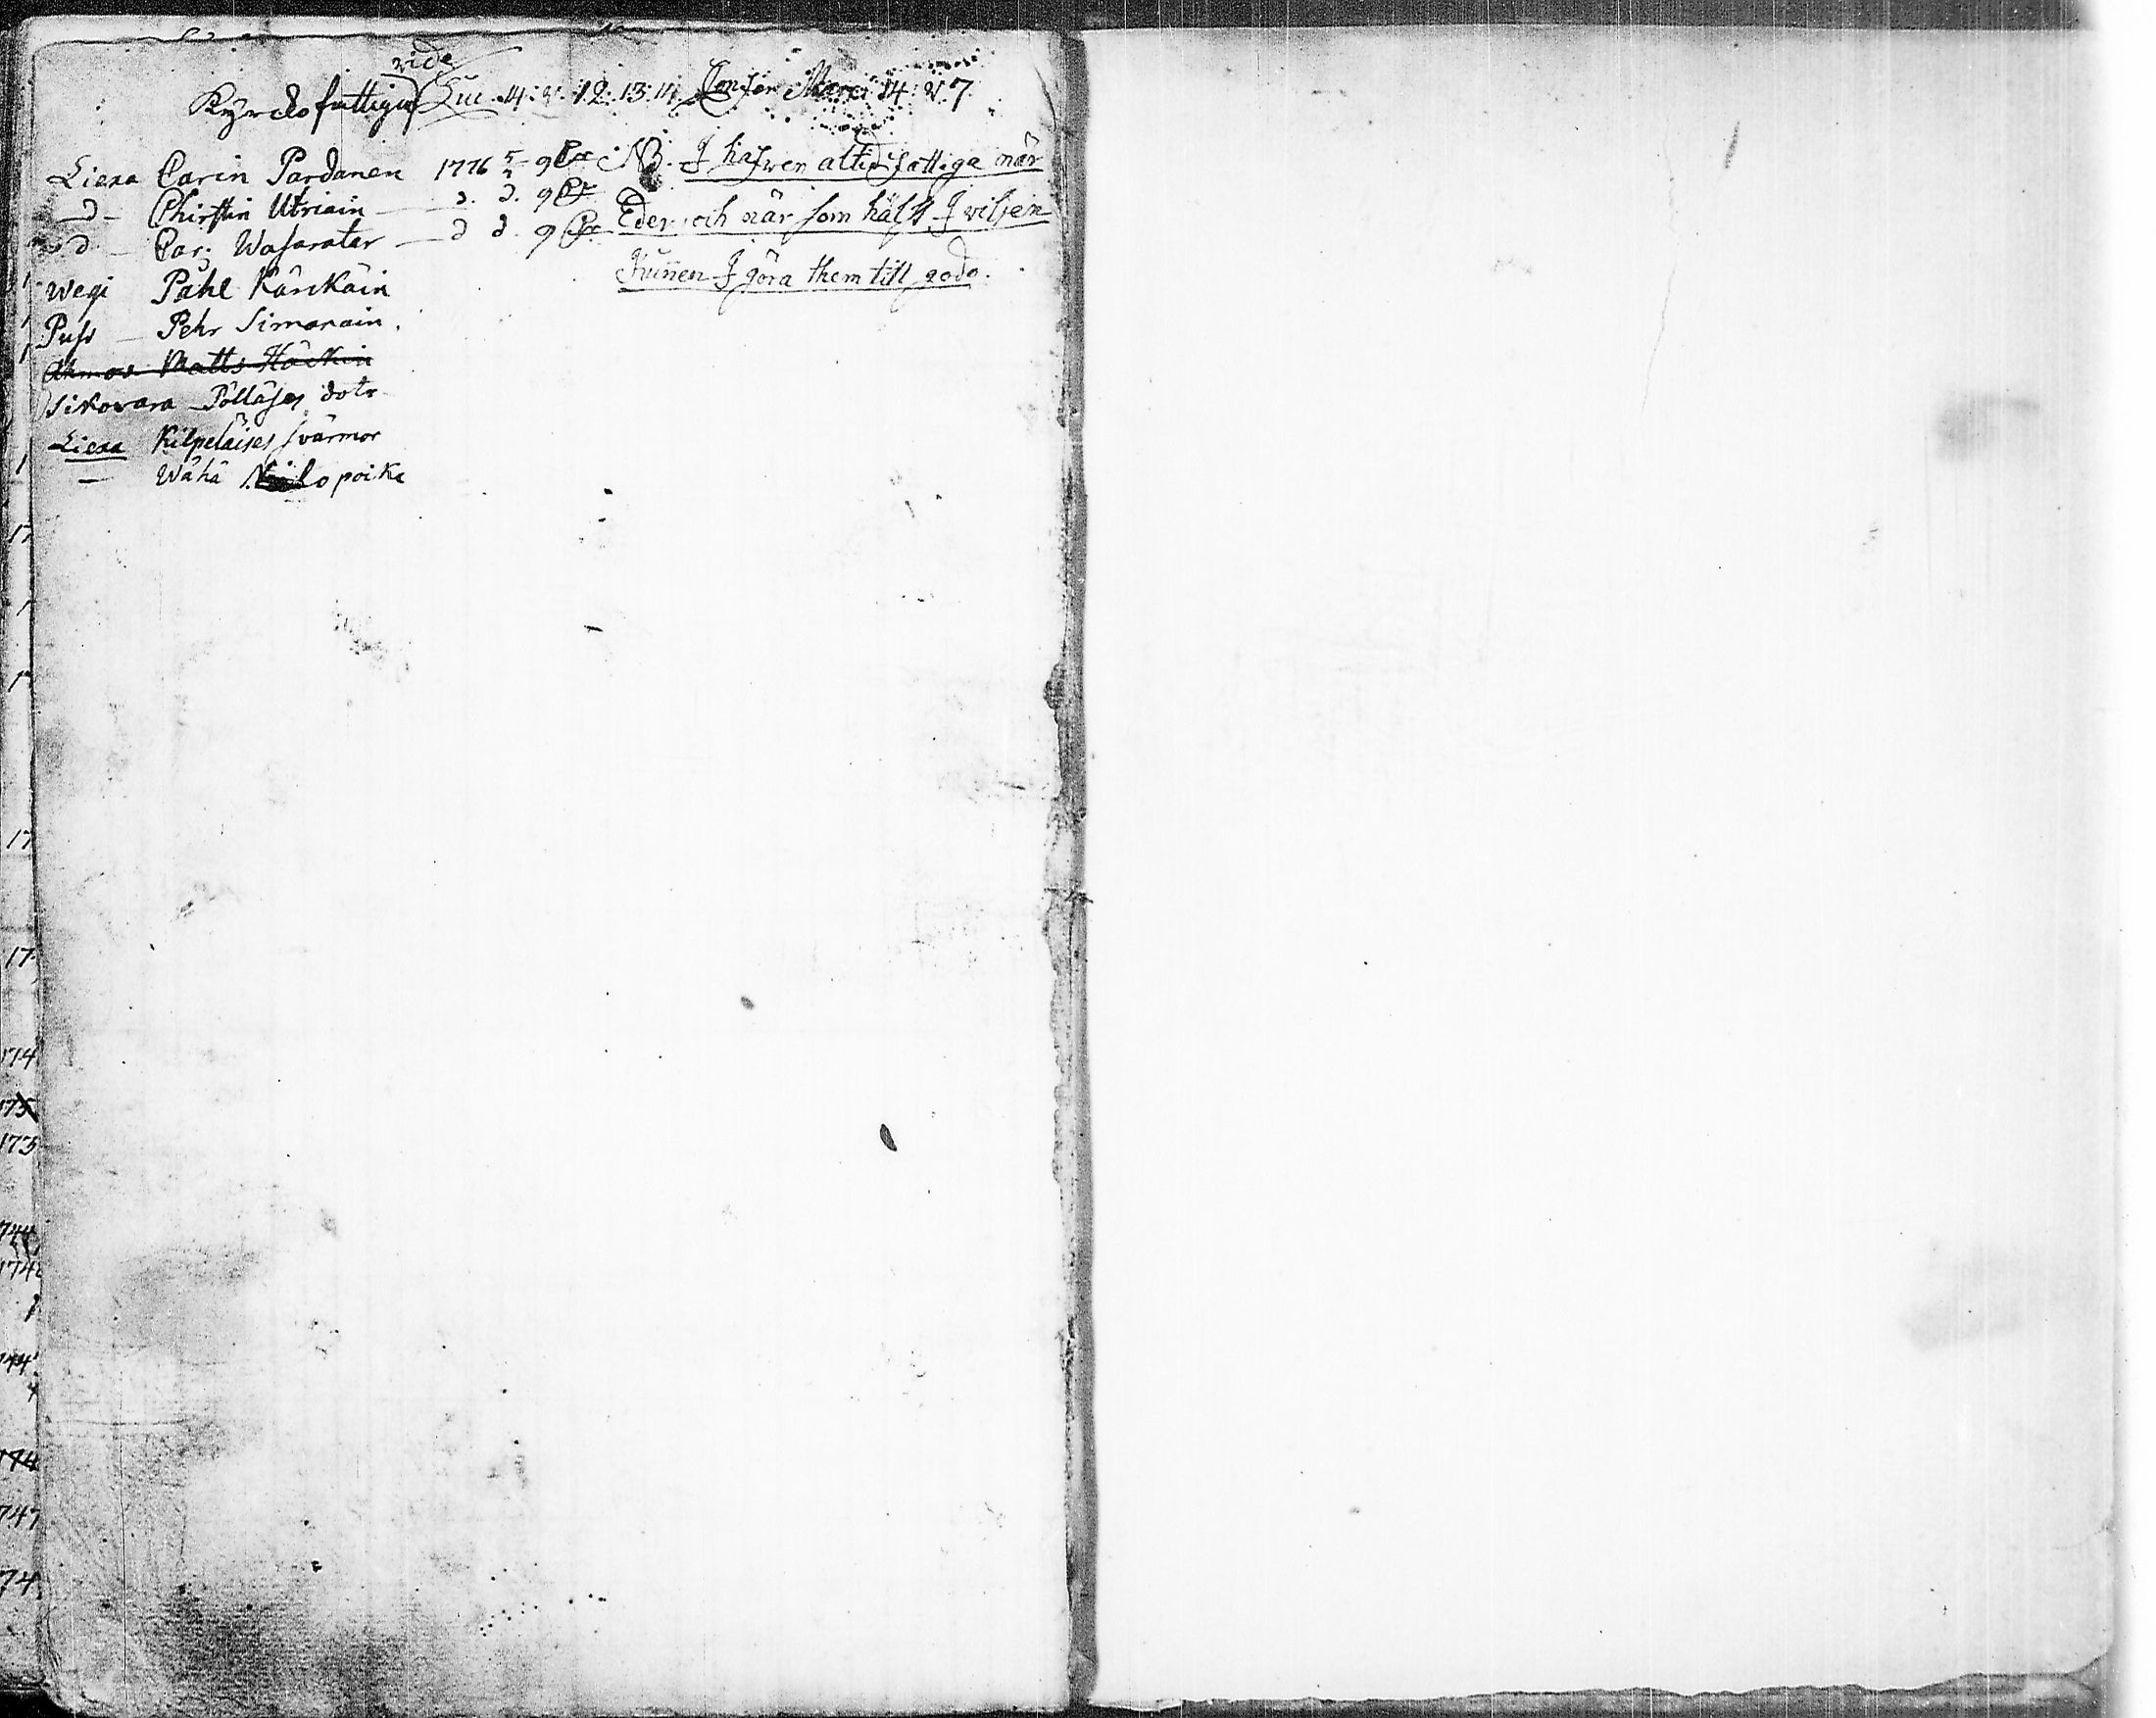 vide
Kyrcko fattiga Luc. 14: v. 12. 13. 14. Confer Marci 14: v. 7
Liexa Carin Pardanen 1776 5/2 9 NB. I hafwen altid fattiga när
— d — Chirstin Utriain — d. d. 9 Eder, och när som hälst I wiljen
— d — Car; Wasaratar — d d. 9 Kunnen I göra them till godo.
Wegi Påhl Kärckäin
Puso — Pehr Simanain.
Matts Häckin
Sikovara Pölläses dotr
Liexa Kilpeläises svärmor
— Wähä Niilo poika
17
17
17
174
175
173
744
174
174
747
74